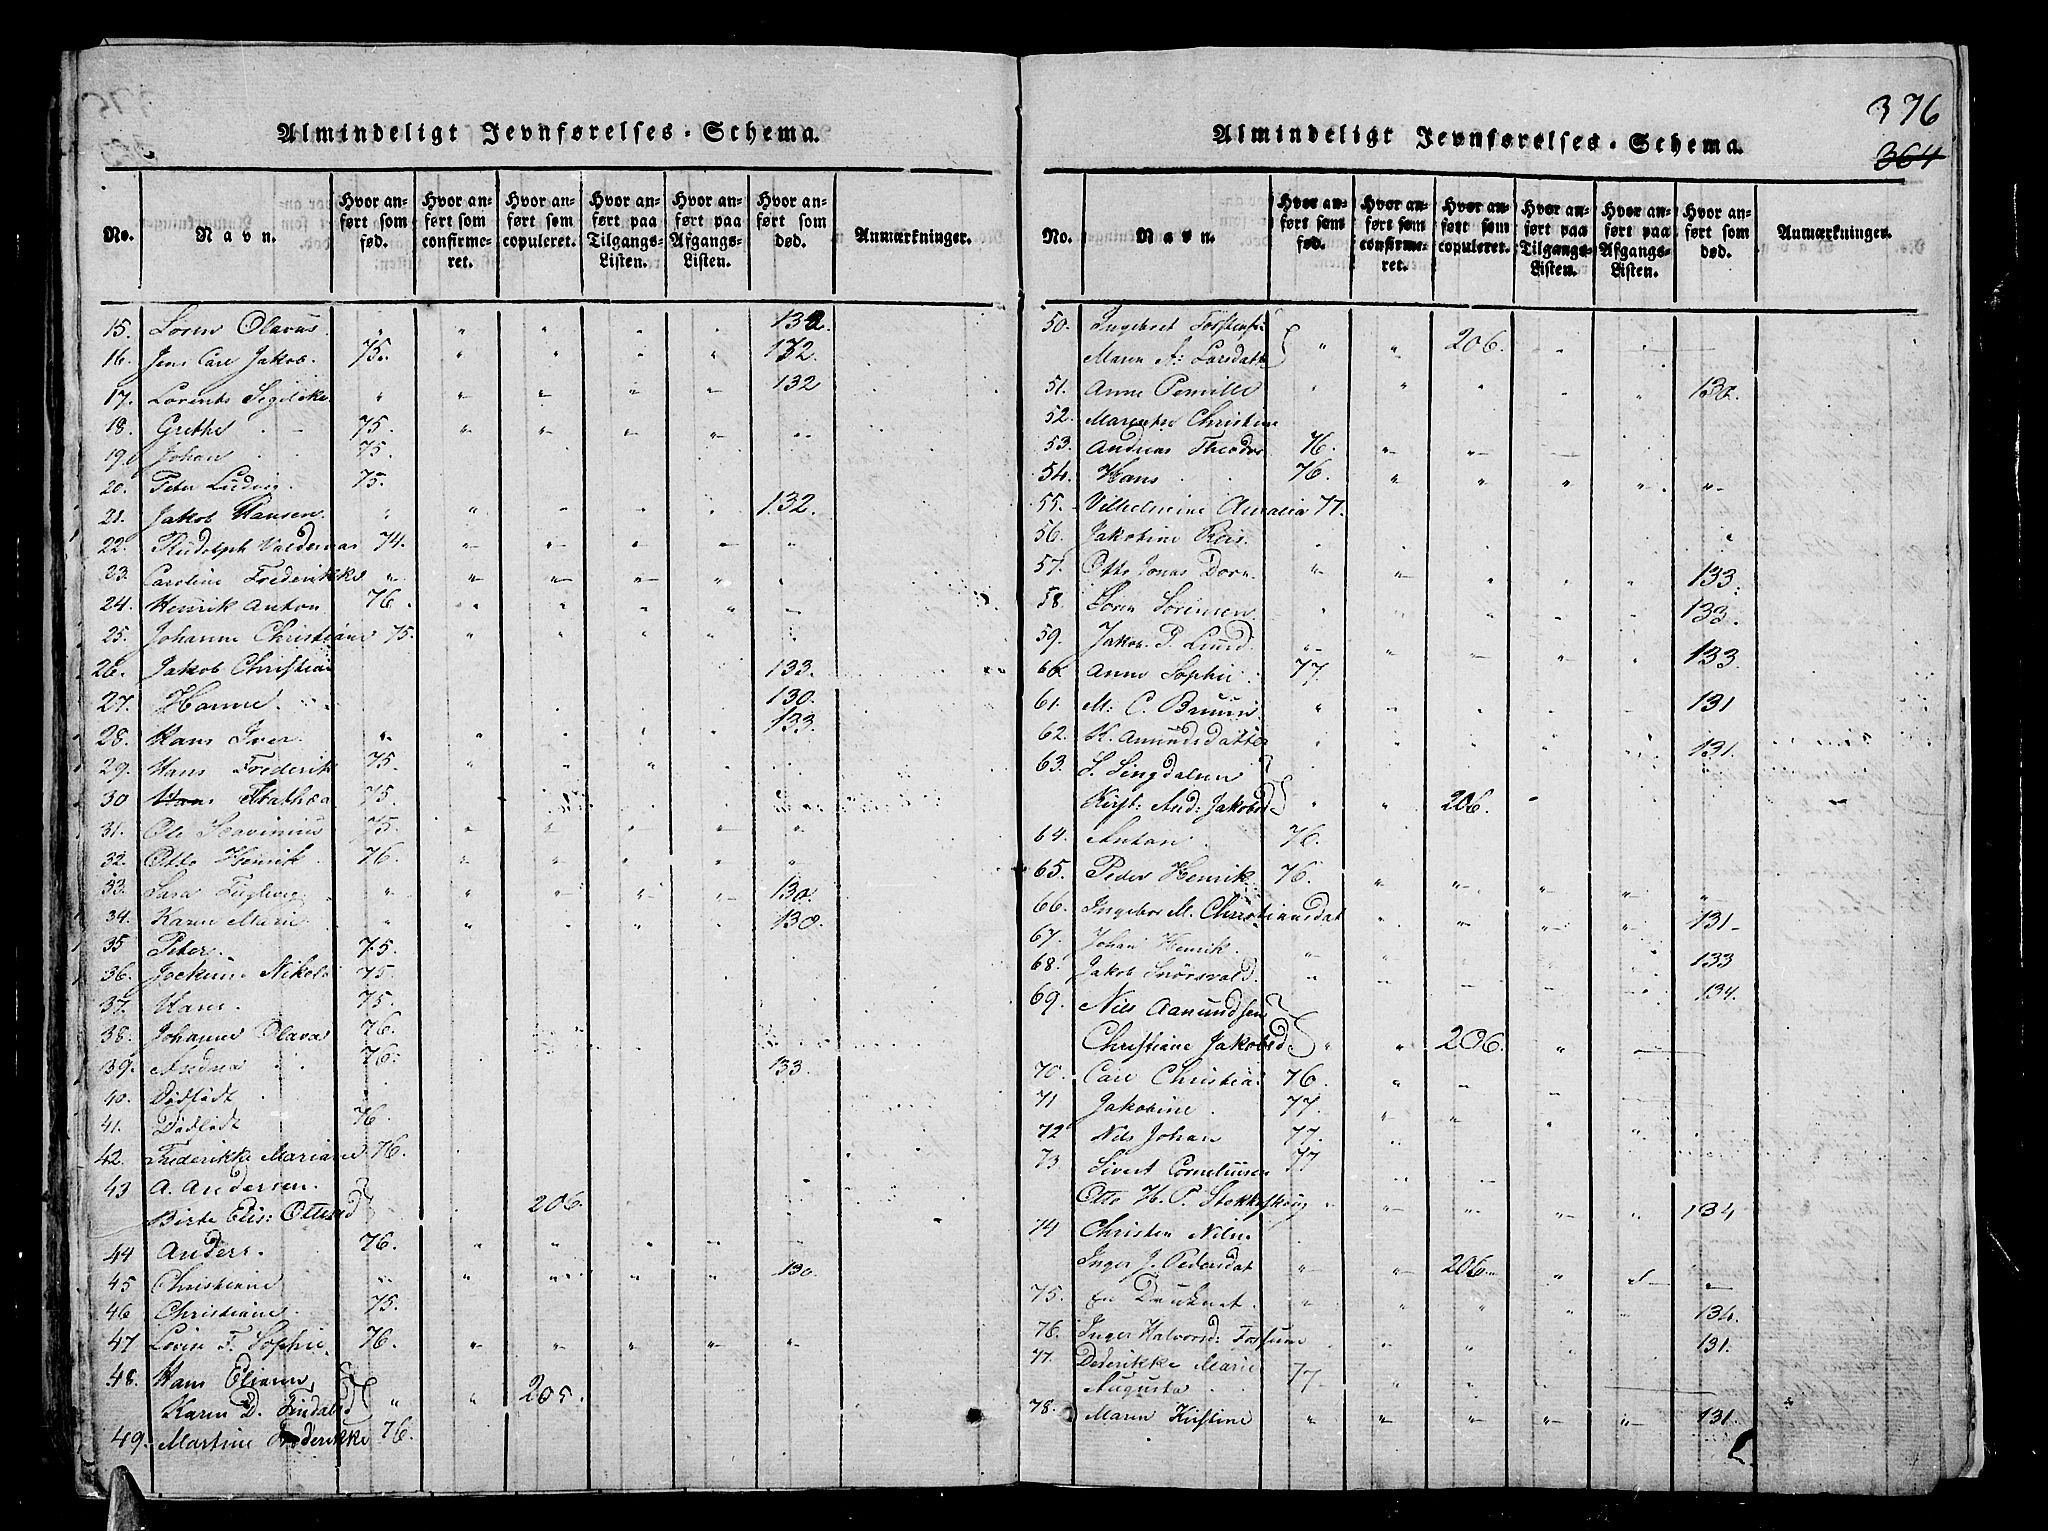 Almindeligt Jevnførelses-Schema.
No. Navn. Hvor anført som fød. Hvor anført som confirmeret. Hvor anført som copuleret. Hvor anført paa Tilgangs-Listen. Hvor anført paa Afgangs-Listen. Hvor anført som død. Anmærkninger.
15. Søren Olavus 132
16. Jens Carl Jakob. 75. 132.
17. Lorents Segelcke 132
18. Grethe 75.
19. Johan 75.
20. Peter Ludvig 75.
21. Jakob Hansen. 132.
22. Rudolph Valdemar 74.
23. Caroline Frederikke
24. Henrik Anton 76.
25. Johanne Christiane 75.
26. Jakob Christian 133.
27. Hanne 130.
28. Hans Iver. 133.
29. Hans Frederik 75.
30 Mathea 75.
31. Ole Scavinius 75.
32. Otto Henrik 76.
33. Sara Fuglevig 130.
34. Karen Marie 130.
35 Peter 75.
36. Jockum Nikolai 75.
37. Hans. 75.
38. Johanne Olava 76.
39. Andrea 76. 133.
40. Dødfødt
41. Dødfødt 76.
42. Frederikke Mariane 76.
43 A. Andersen.
Birte Elis: Ottesd 206.
44 Anders. 76.
45 Christiane 130.
46 Christiane. 75.
47 Lovise F. Sophie 76.
48. Hans Eliesen,
Karen D. Findalsd 205.
49. Martine Frederikke 76.
376
364
Almindeligt Jevnførelses-Schema.
No. Navn. Hvor anført som fød. Hvor anført som confirmeret. Hvor anført som copuleret. Hvor anført paa Tilgangs-Listen. Hvor anført paa Afgangs-Listen. Hvor anført som død. Anmærkninger.
50. Ingebret
Maren A: Larsdatt 206.
51. Anne Pernille 132.
52. Christine
53. Andreas Theodor 76.
54. Hans 76.
55. Vilhelmine Amalia 77.
56. Jakobine Reis.
57. Otto Jonas Dorn. 133.
58. Søren Sørensen 133.
59. Jakob P. Lund 133
60. Anne Sophie 77.
61. M: C. Bruun. 131
62. K. Amundsdatter 131.
63. S. Lingdalsen
Kirst: And: Jakobsd 206.
64. Anton 76.
65. Peder Henrik 76.
66. Ingebor M. Christiansdat 131.
67. Johan Henrik. 133
68. Jakob 134.
69. Nils Aamundsen
Christiane Jakobsd 206.
70. Carl Christian 76.
71 Jakobine 77.
72 Nils Johan 77.
73 Sivert Corneliusen 77
Otto H. P. 134
74 Christen Nilsn
Inger J. Pedersdat 206.
75. En Druknet. 134.
76. Inger Halvorsd: Fossum 131.
77. Dederikke Marie
Augusta 77.
78. Maren Kirstine 131.